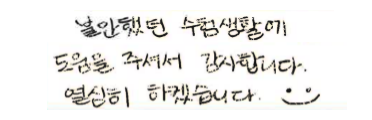 불안했던 수험생활에
도움을 주셔서 감사합니다.
열심히 하겠습니다.